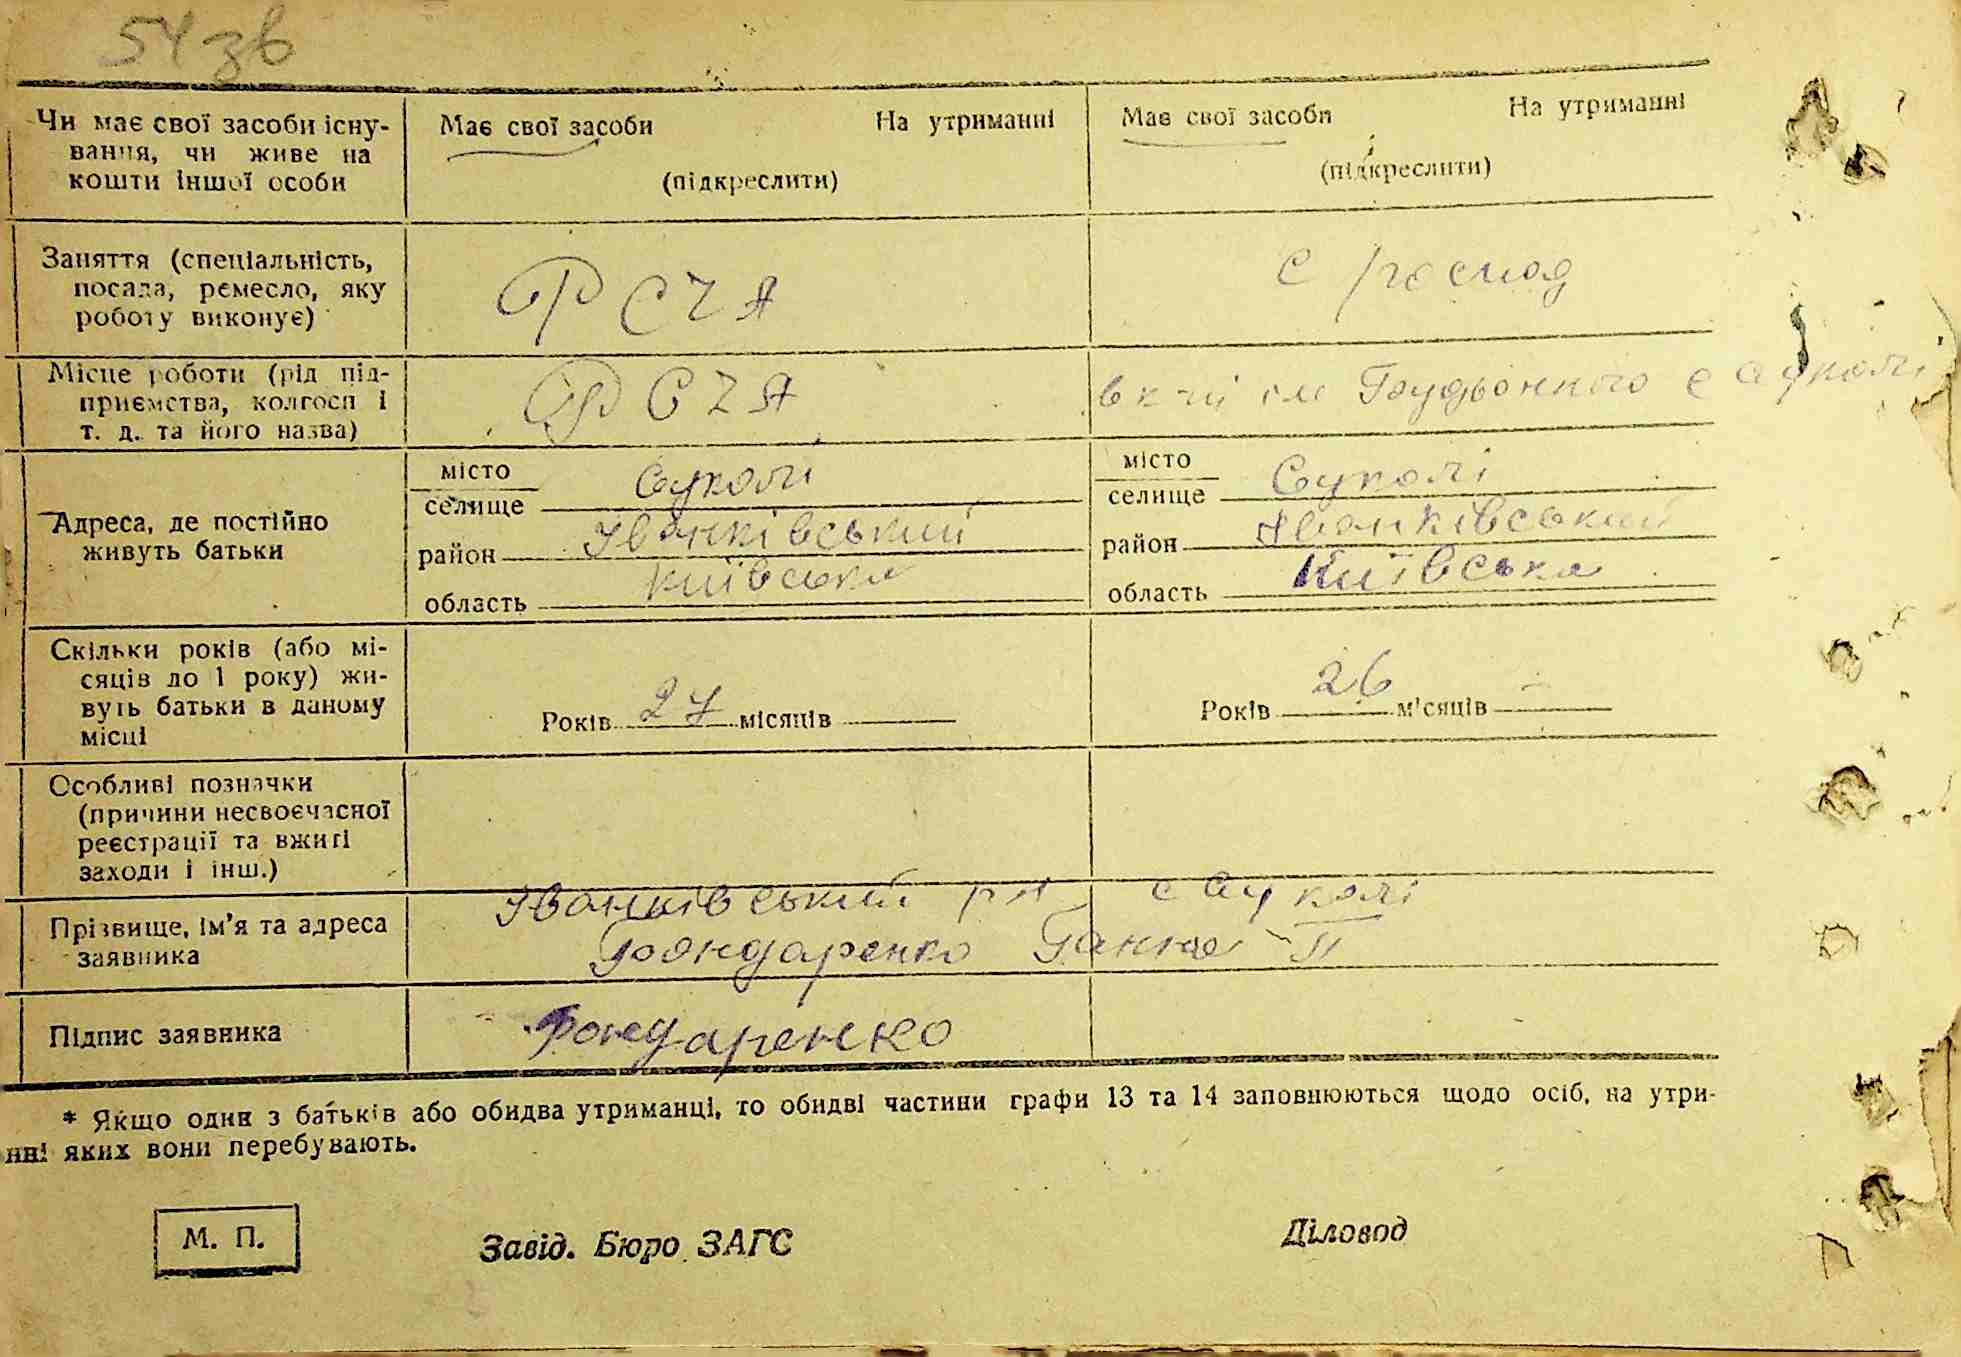 54 зв
Чи має свої засоби існу-
вання, чи живе на
кошти іншої особи
Має свої засоби На утриманні
(підкреслити)
Має свої засоби На утриманні
(підкреслити)
Заняття (спеціальність,
посада, ремесло, яку
роботу виконує)
РСЧА
Місце роботи (рід під-
приємства, колгосп і
т. д. та його назва)
РСЧА
Адреса, де постійно
живуть батьки
місто
селище Сукачі
район Іванківський
область Київська
місто
селище Сукачі
район Іванківський
область Київська
Скільки років (або мі-
сяців до 1 року) жи-
вуть батьки в даному
місці
Років 27 місяців
Років 26 місяців -
Особливі позначки
(причини несвоєчасної
реєстрації та вжиті
заходи і інш.)
Прізвище, ім'я та адреса
заявника
Іванківський рн с Сукачі
Бондаренко Ганна П
Підпис заявника
Бондаренко
* Якщо один з батьків або обидва утриманці, то обидві частини графи 13 та 14 заповнюються щодо осіб, на утри-
нні яких вони перебувають.
М. П.
Завід. Бюро ЗАГС
Діловод